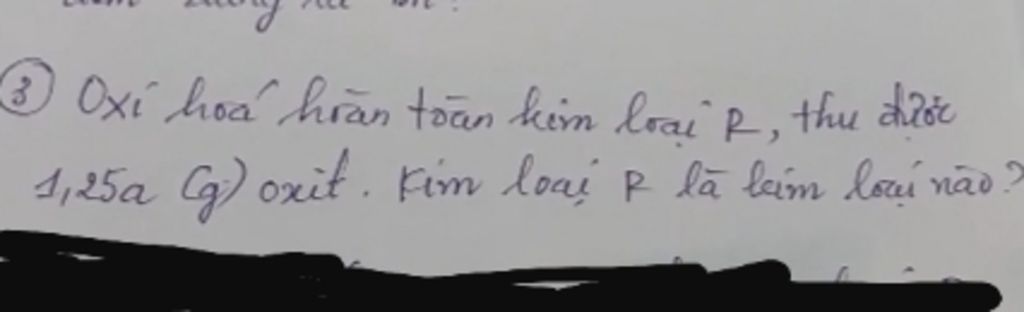 ③ Oxi hoá hoàn toàn kim loại R, thu được
1,25a (g) oxit. Kim loại R là kim loại nào?